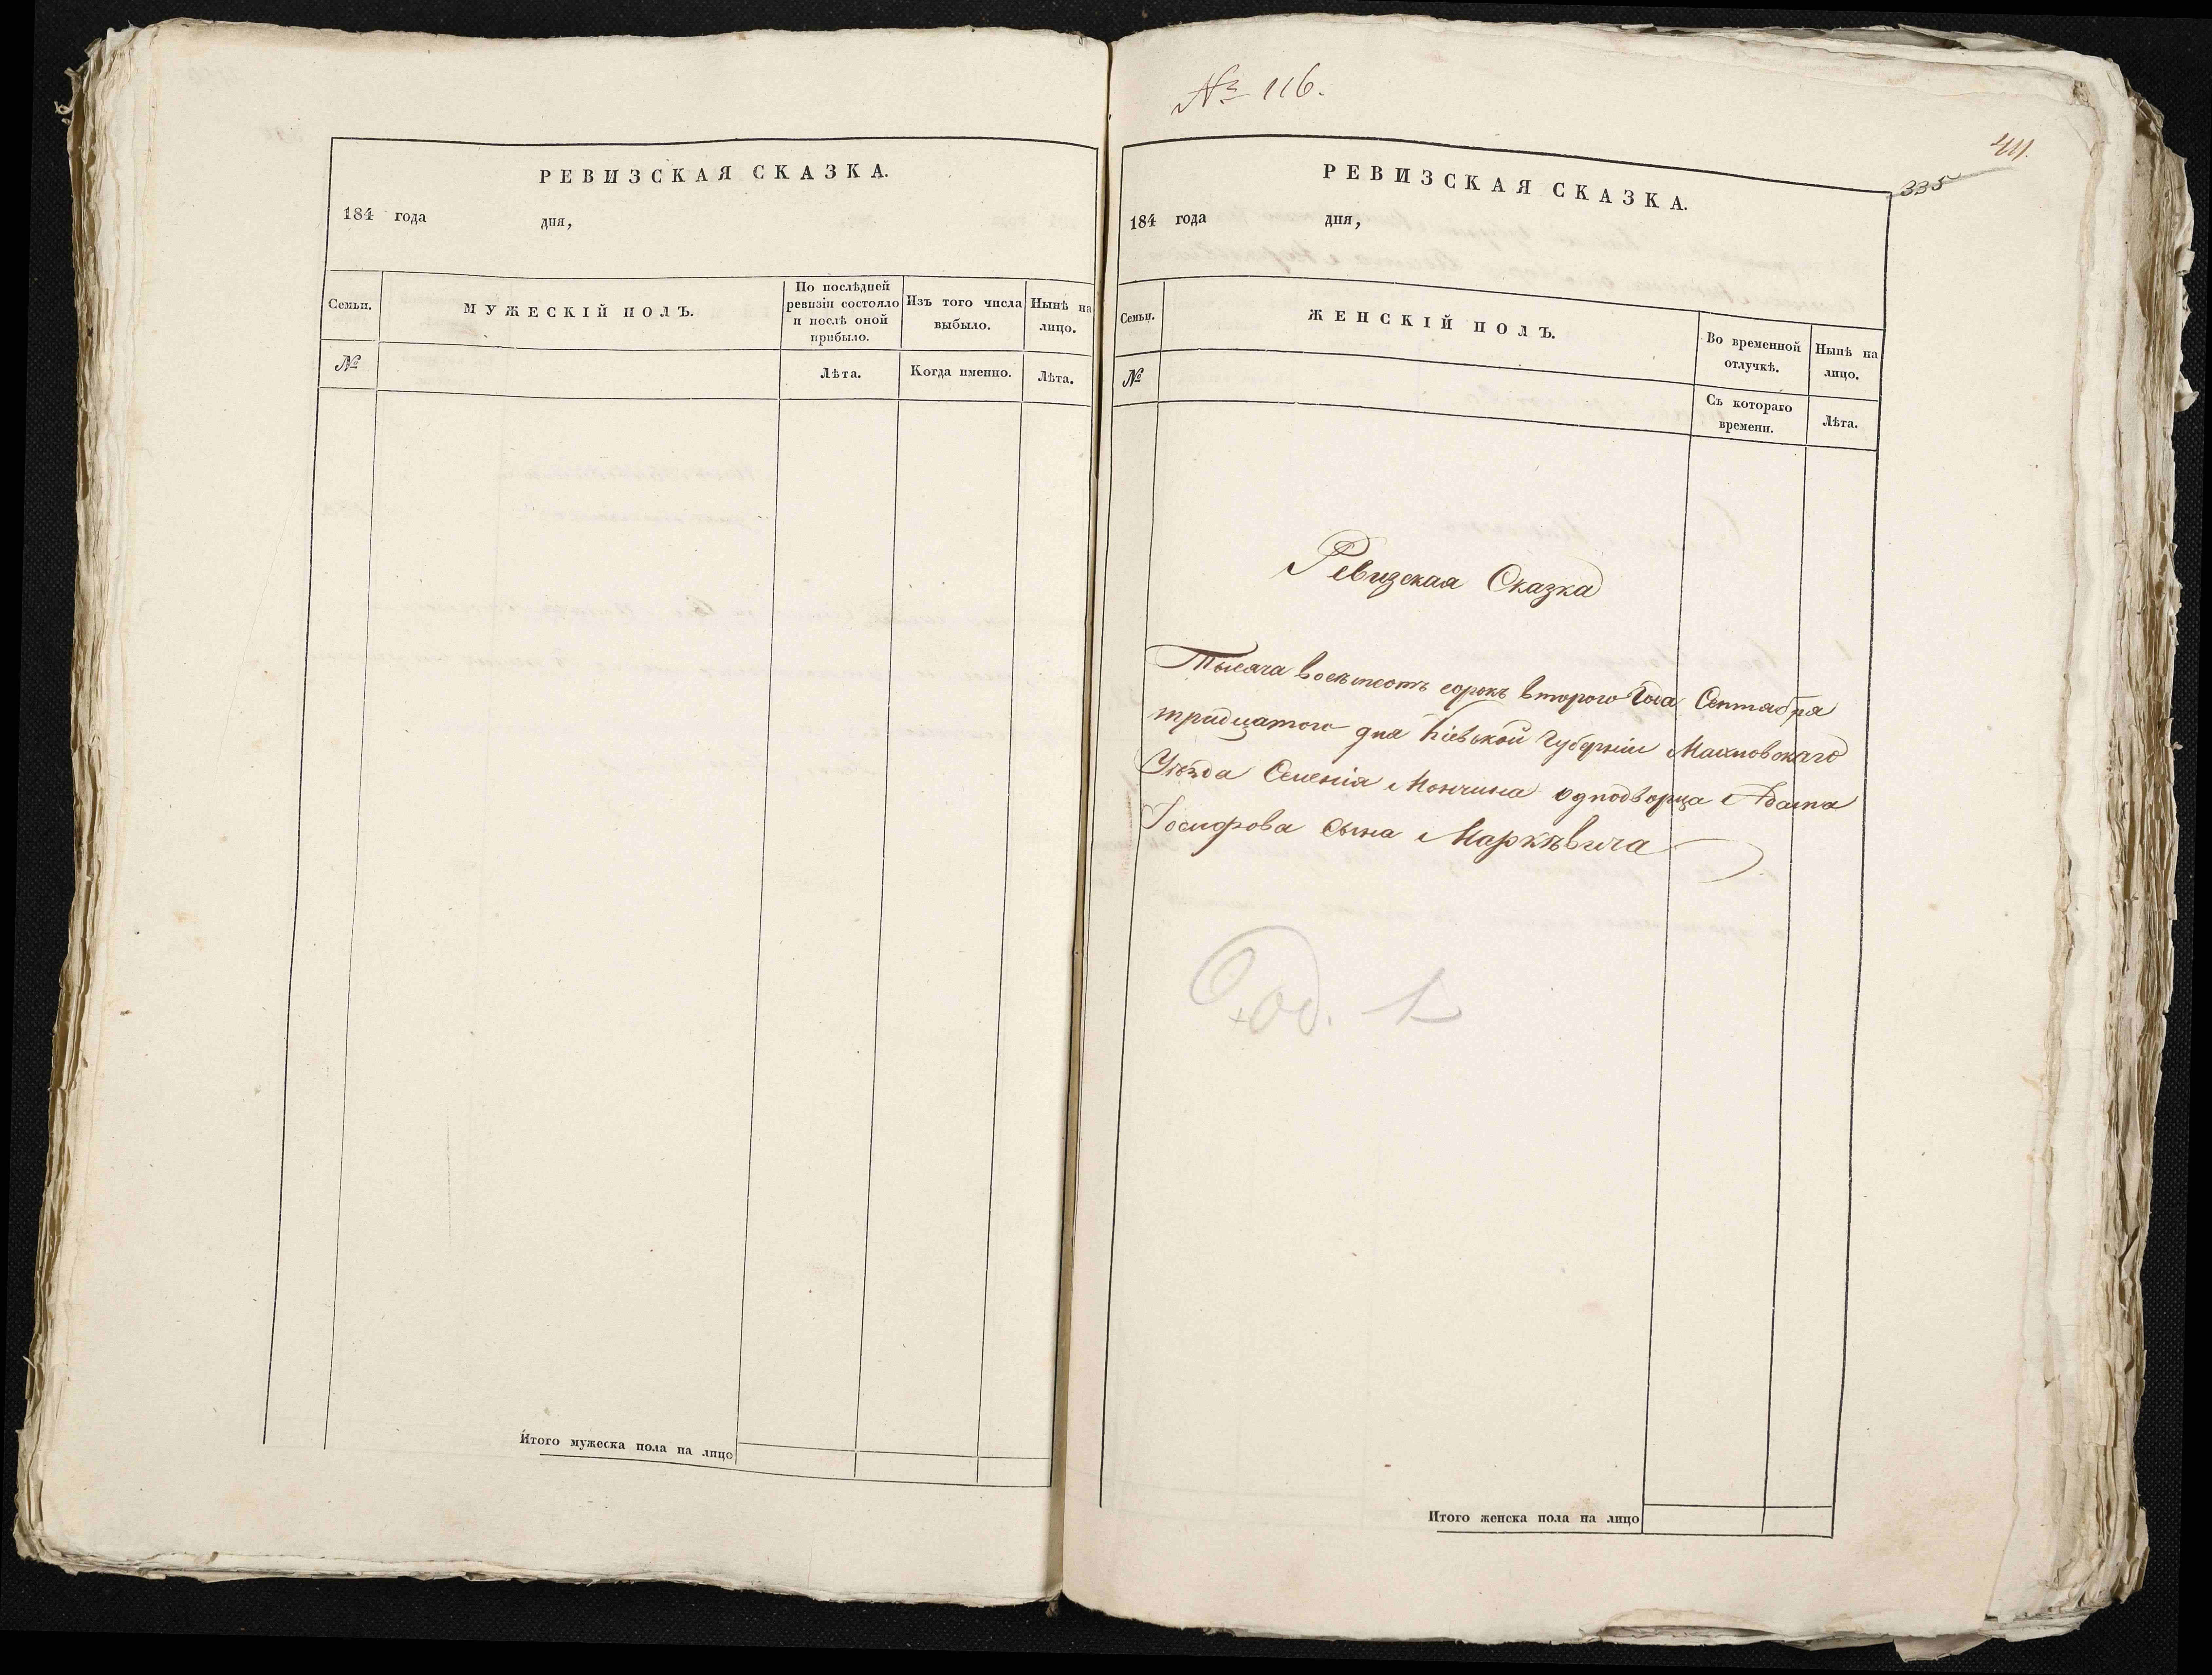 РЕВИЗСКАЯ СКАЗКА.
184 года дня,
Семьи.
МУЖЕСКІЙ ПОЛЪ.
По послѣдней
ревизіи состояло
и послѣ оной
прибыло.
Изъ того числа
выбыло.
Нынѣ на
лицо.
№
Лѣта.
Когда именно.
Лѣта.
Итого мужеска пола на лицо
№ 116.
411.
335
РЕВИЗСКАЯ СКАЗКА.
184 года дня,
Семьи.
ЖЕНСКІЙ ПОЛЪ.
Во временной
отлучкѣ.
Нынѣ на
лицо.
№
Съ котораго
времени.
Лѣта.
Ревизская Сказка
Тысяча восемьсотъ сорокъ второго Года Сентября
тридцатого дня Кіевской Губерніи Махновскаго
Уѣзда Селенія Мончина однодворца Адама
Іосифова сына Маркѣвича
Од. 1
Итого женска пола на лицо